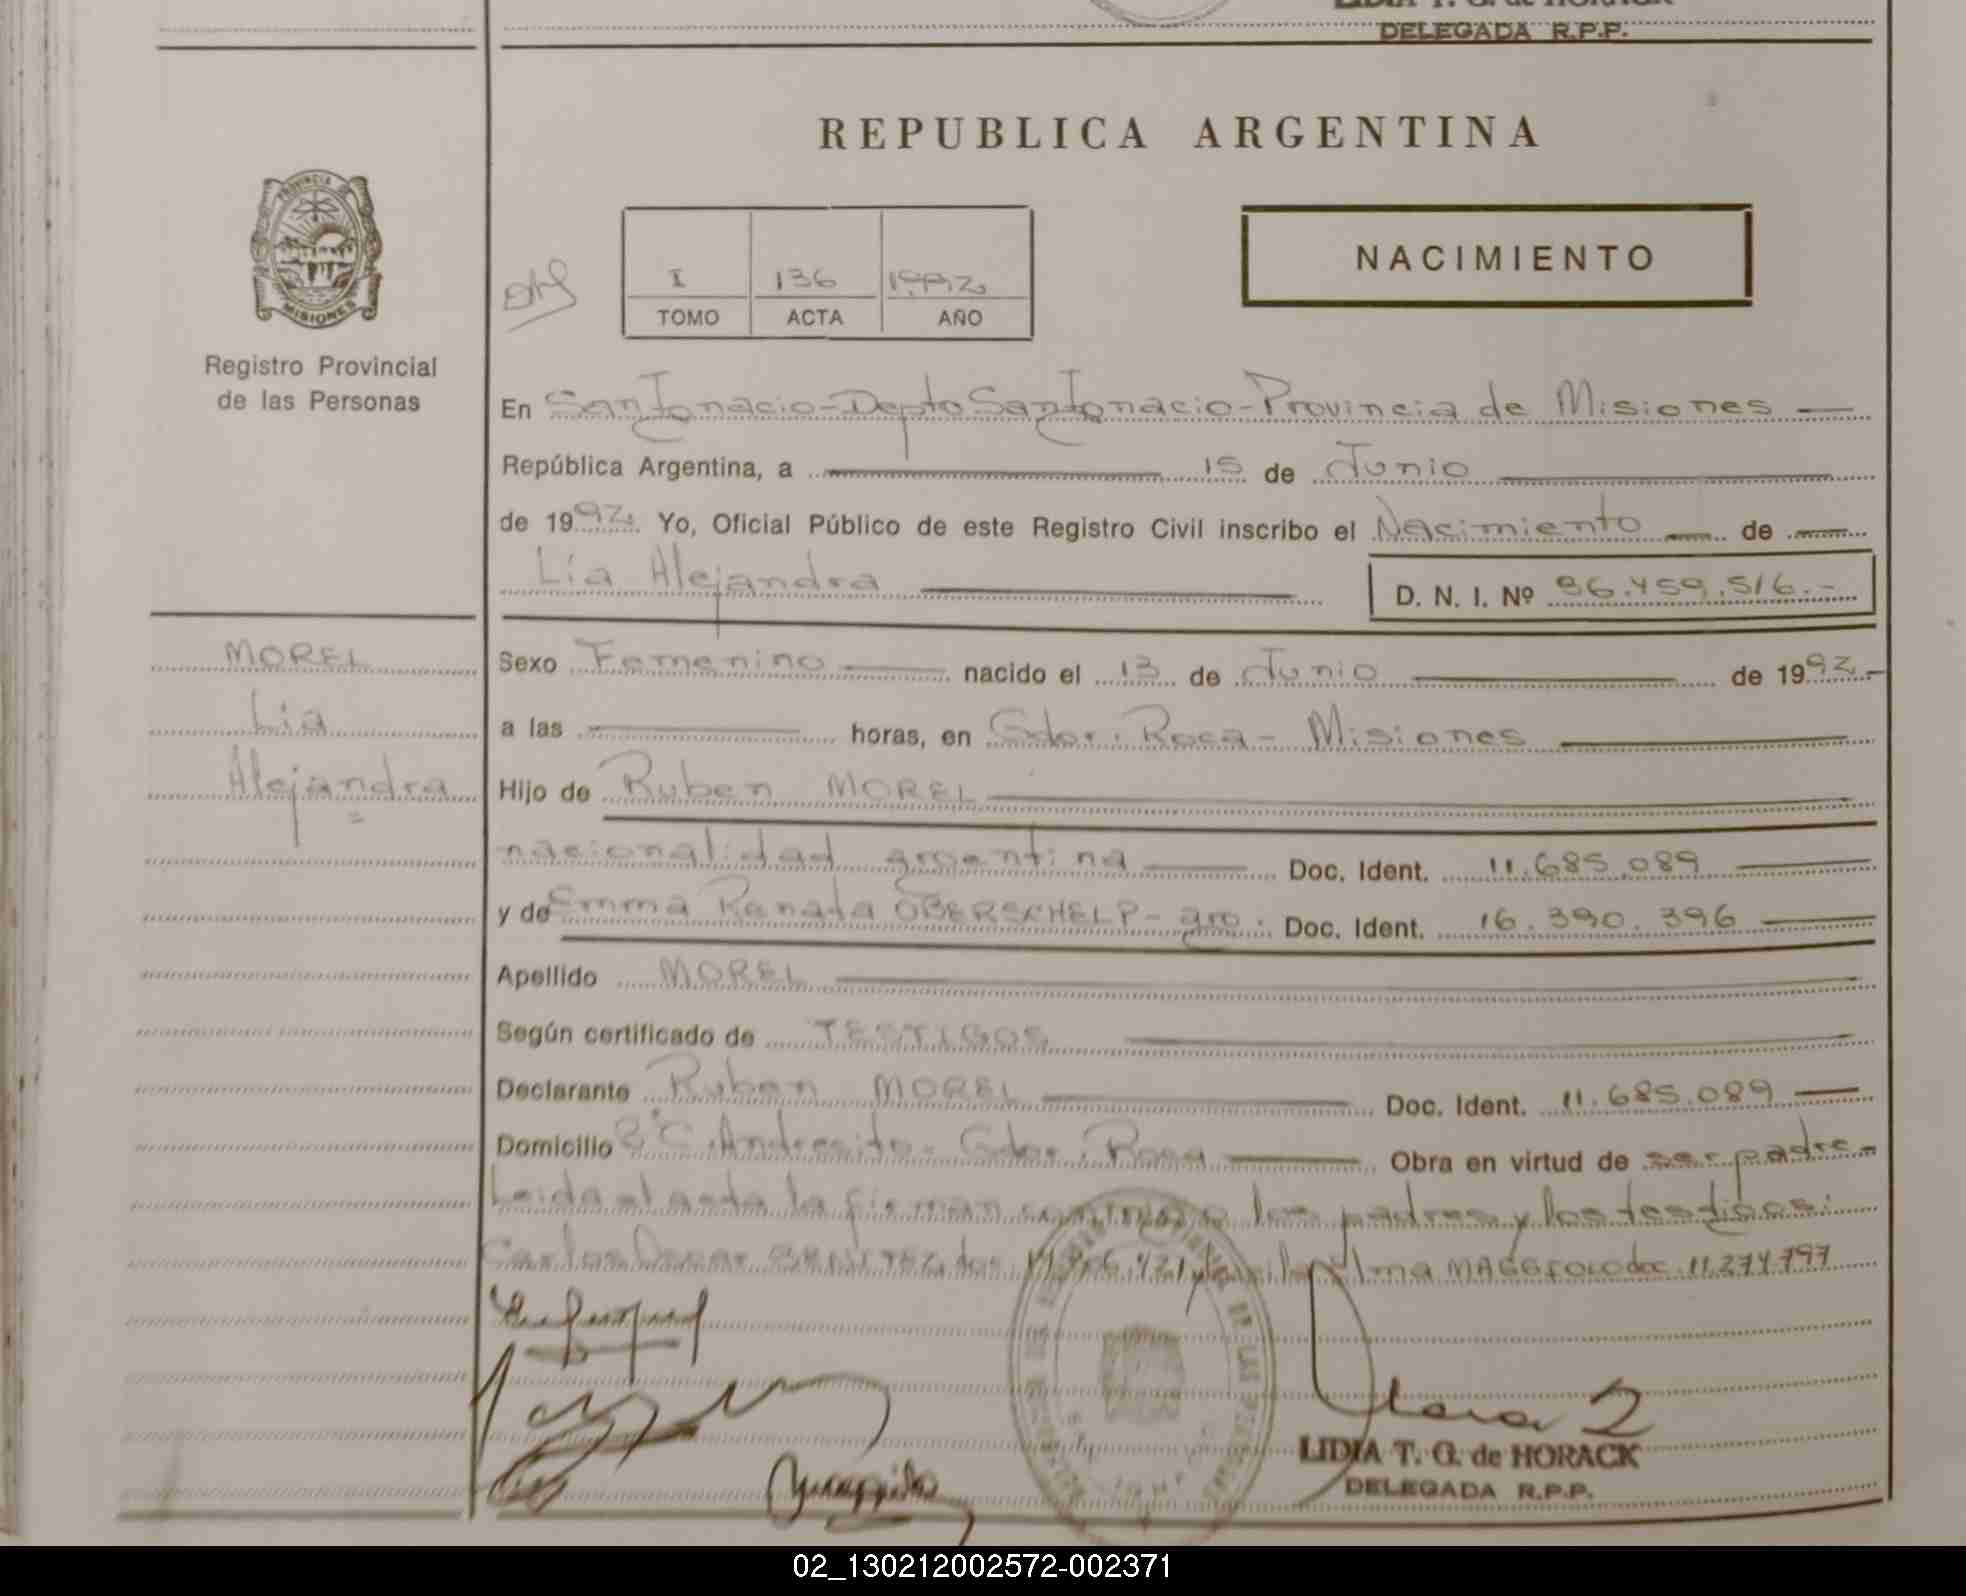 LIDIA T. G. de HORACK
DELEGADA R.P.P.
REPUBLICA ARGENTINA
PROVINCIA DE
MISIONES
Registro Provincial
de las Personas
I 136 1992
TOMO ACTA AÑO
NACIMIENTO
En San Ignacio - Depto San Ignacio - Provincia de Misiones
República Argentina, a 15 de Junio
de 1992 Yo, Oficial Público de este Registro Civil inscribo el Nacimiento de
Lía Alejandra D. N. I. Nº 36.459.516.-
MOREL
Lía
Alejandra
Sexo Femenino nacido el 13 de Junio de 1992.-
a las horas, en Gdor. Roca - Misiones
Hijo de Ruben MOREL
nacionalidad argentina Doc. Ident. 11.685.089
y de Emma Renata OBERSCHELP - arg. Doc. Ident. 16.390.396
Apellido MOREL
Según certificado de TESTIGOS
Declarante Ruben MOREL Doc. Ident. 11.685.089
Domicilio C. Andresito - Gdor. Roca Obra en virtud de ser padre -
Leida el acta la firman conmigo los padres y los testigos:
Carlos Oscar BENITEZ, doc Ilma doc. 11.274.797
LIDIA T. G. de HORACK
DELEGADA R.P.P.
02_130212002572-002371